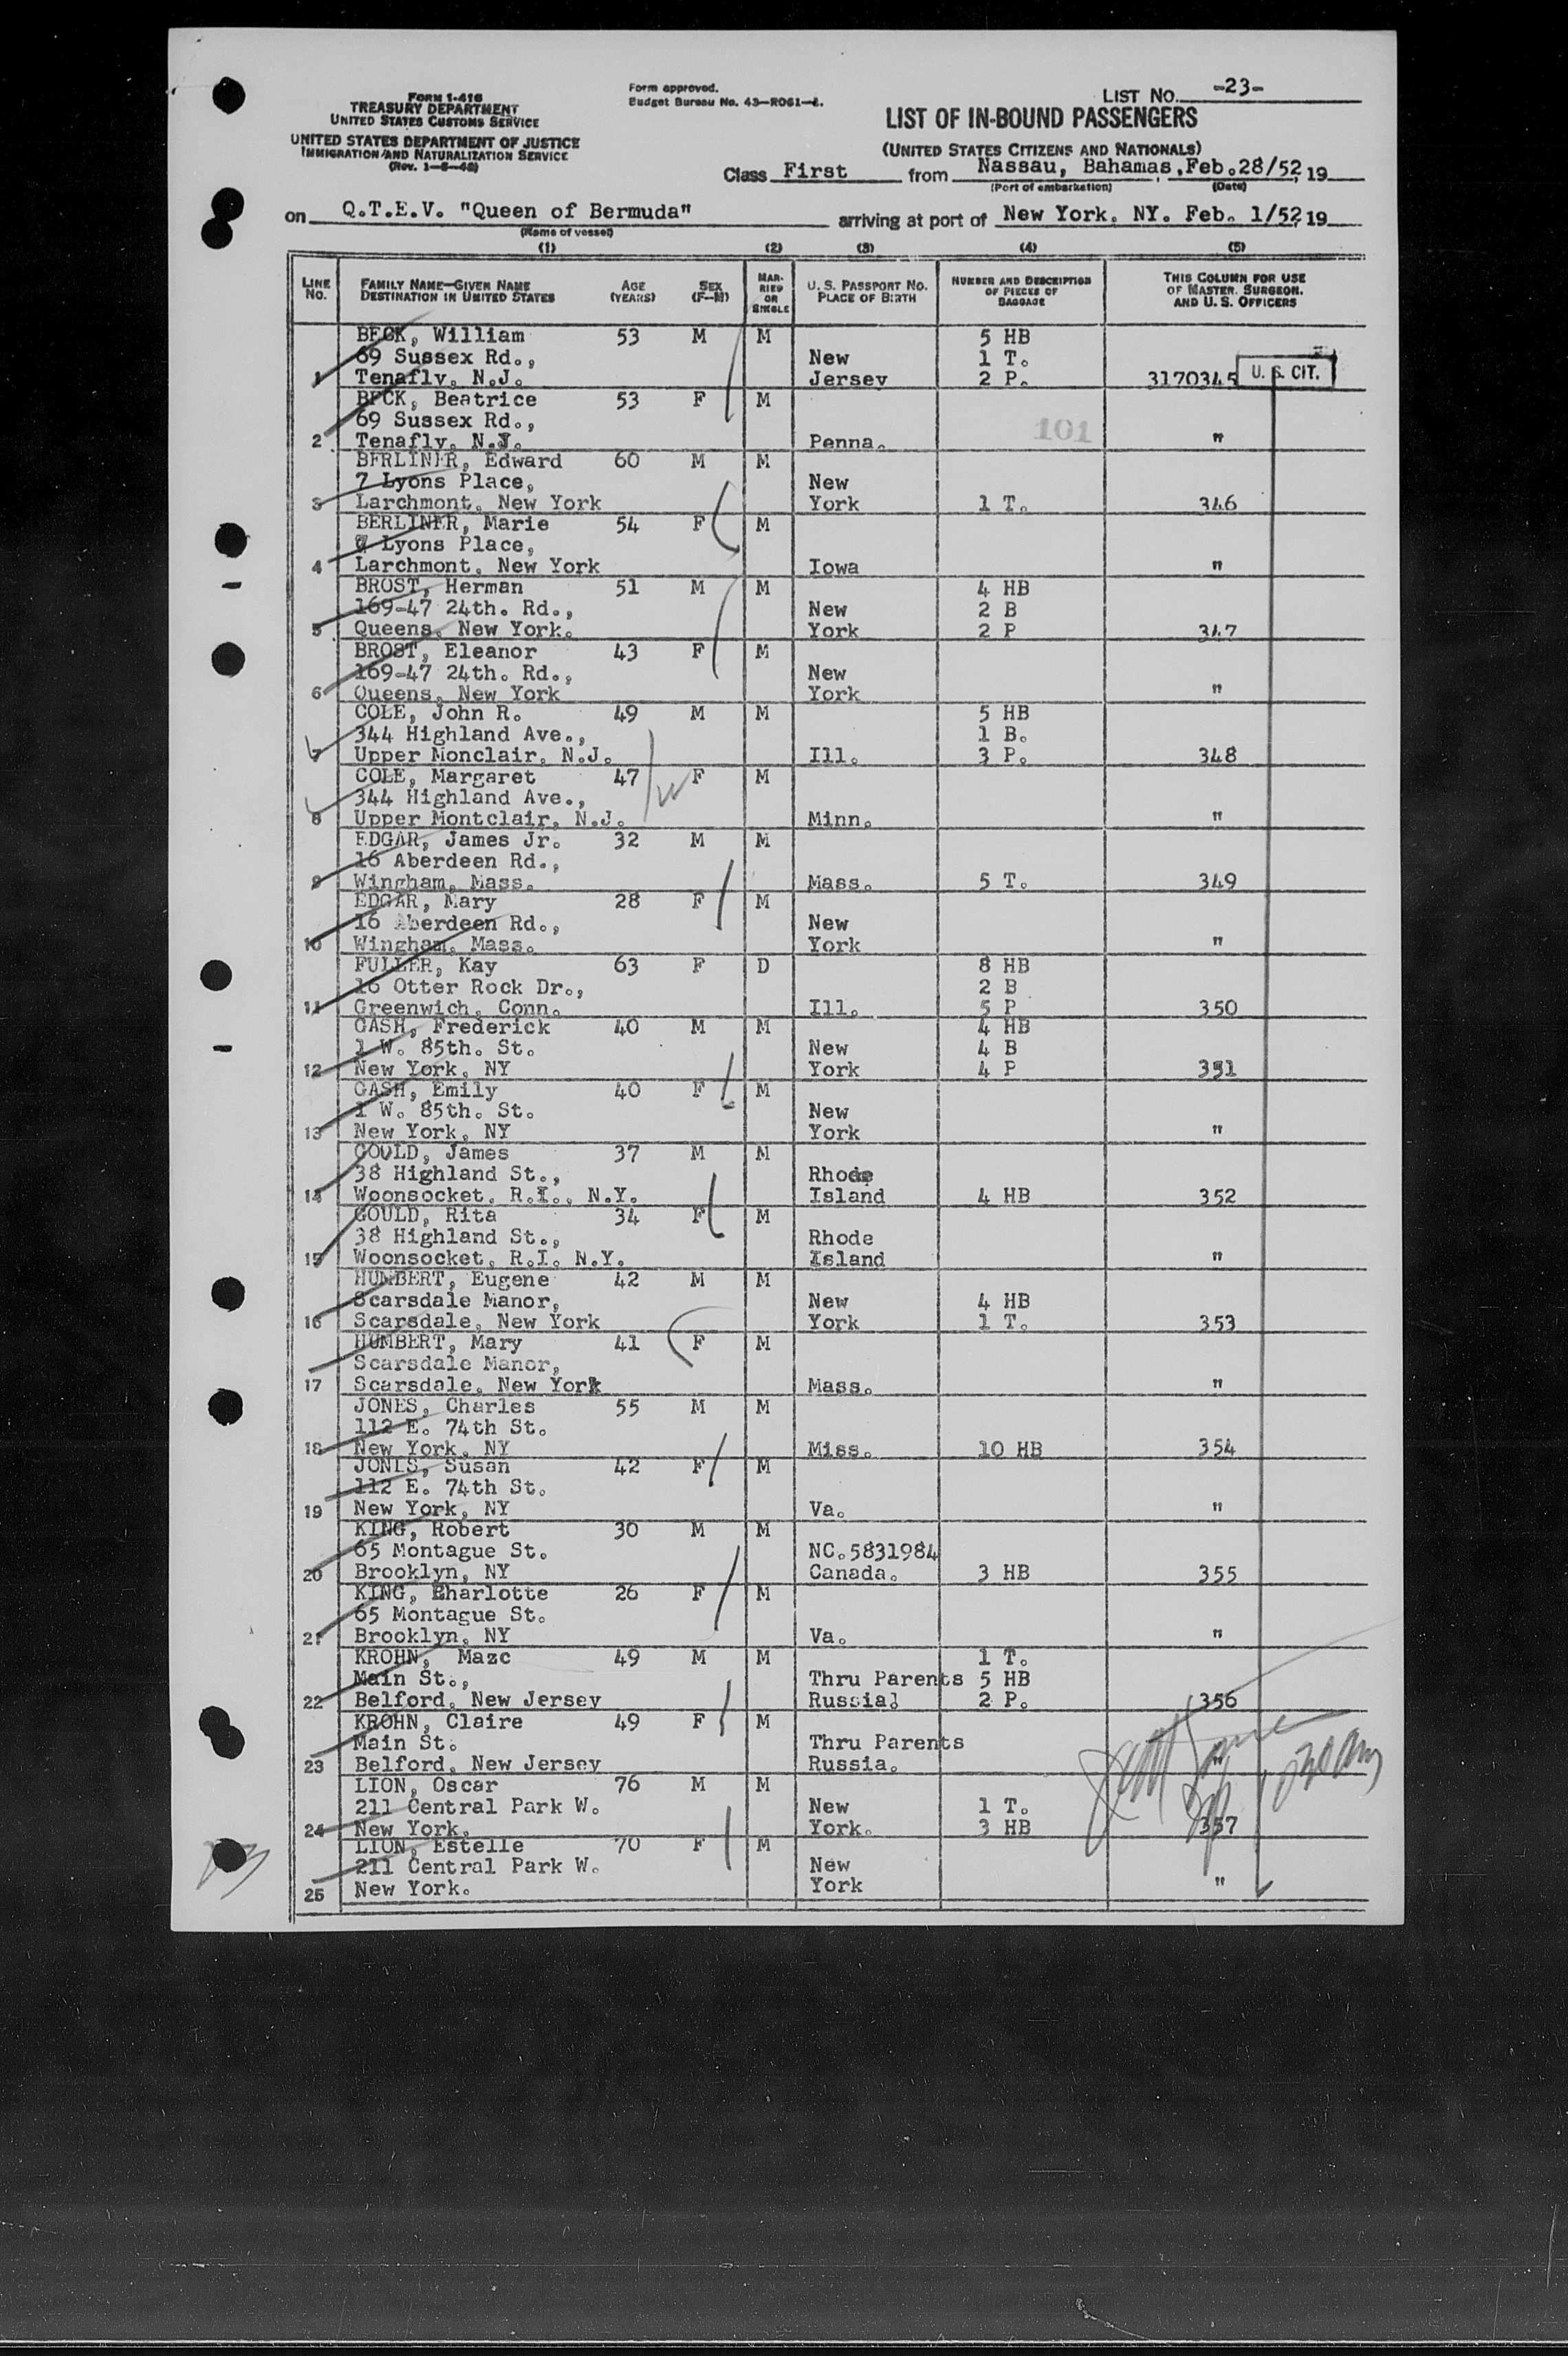 FORM I-416
TREASURY DEPARTMENT
UNITED STATES CUSTOMS SERVICE
UNITED STATES DEPARTMENT OF JUSTICE
IMMIGRATION AND NATURALIZATION SERVICE
Form approved.
Budget Bureau No. 43—RO61—
LIST NO. -23-
LIST OF IN-BOUND PASSENGERS
(UNITED STATES CITIZENS AND NATIONALS)
Class First from Nassau, Bahamas, Feb.28/52, 19
(Port of embarkation) (Date)
on Q.T.E.V. "Queen of Bermuda" arriving at port of New York. NY. Feb. 1/52, 19
(Name of vessel)
(1) (2) (3) (4) (5)
LINE No. FAMILY NAME—GIVEN NAME DESTINATION IN UNITED STATES AGE (YEARS) SEX (F—M) MARRIED OR SINGLE U. S. PASSPORT NO. PLACE OF BIRTH NUMBER AND DESCRIPTION OF PIECES OF BAGGAGE THIS COLUMN FOR USE OF MASTER, SURGEON, AND U. S. OFFICERS
BECK, William 53 M M 5 HB
69 Sussex Rd., New 1 T.
1 Tenafly, N.J. Jersey 2 P. 3170345 U. S. CIT.
BECK, Beatrice 53 F M
69 Sussex Rd., 101
2 Tenafly, N.J. Penna. "
BERLINER, Edward 60 M M
7 Lyons Place, New
3 Larchmont, New York York 1 T. 346
BERLINER, Marie 54 F M
7 Lyons Place,
4 Larchmont, New York Iowa "
BROST, Herman 51 M M 4 HB
169-47 24th. Rd., New 2 B
5 Queens, New York. York 2 P 347
BROST, Eleanor 43 F M
169-47 24th. Rd., New
6 Queens, New York York "
COLE, John R. 49 M M 5 HB
344 Highland Ave., 1 B.
7 Upper Monclair, N.J. Ill. 3 P. 348
COLE, Margaret 47 F M
344 Highland Ave.,
8 Upper Montclair, N.J. Minn. "
EDGAR, James Jr. 32 M M
16 Aberdeen Rd.,
9 Wingham, Mass. Mass. 5 T. 349
EDGAR, Mary 28 F M
16 Aberdeen Rd., New
10 Wingham, Mass. York "
FULLER, Kay 63 F D 8 HB
16 Otter Rock Dr., 2 B
11 Greenwich, Conn. Ill. 5 P 350
GASH, Frederick 40 M M 4 HB
1 W. 85th. St. New 4 B
12 New York, NY York 4 P 351
GASH, Emily 40 F M
1 W. 85th. St. New
13 New York, NY York "
GOULD, James 37 M M
38 Highland St., Rhode
14 Woonsocket, R.I., N.Y. Island 4 HB 352
GOULD, Rita 34 F M
38 Highland St., Rhode
15 Woonsocket, R.I. N.Y. Island "
HUMBERT, Eugene 42 M M
Scarsdale Manor, New 4 HB
16 Scarsdale, New York York 1 T. 353
HUMBERT, Mary 41 F M
Scarsdale Manor,
17 Scarsdale, New York Mass. "
JONES, Charles 55 M M
112 E. 74th St.
18 New York, NY Miss. 10 HB 354
JONES, Susan 42 F M
112 E. 74th St.
19 New York, NY Va. "
KING, Robert 30 M M
65 Montague St. NC.5831984
20 Brooklyn, NY Canada. 3 HB 355
KING, Eharlotte 26 F M
65 Montague St.
21 Brooklyn, NY Va. "
KROHN, Mazc 49 M M 1 T.
Main St., Thru Parents 5 HB
22 Belford, New Jersey Russia) 2 P. 356
KROHN, Claire 49 F M
Main St. Thru Parents
23 Belford, New Jersey Russia. "
LION, Oscar 76 M M
211 Central Park W. New 1 T.
24 New York. York. 3 HB 357
LION, Estelle 70 F M
211 Central Park W. New
25 New York. York "